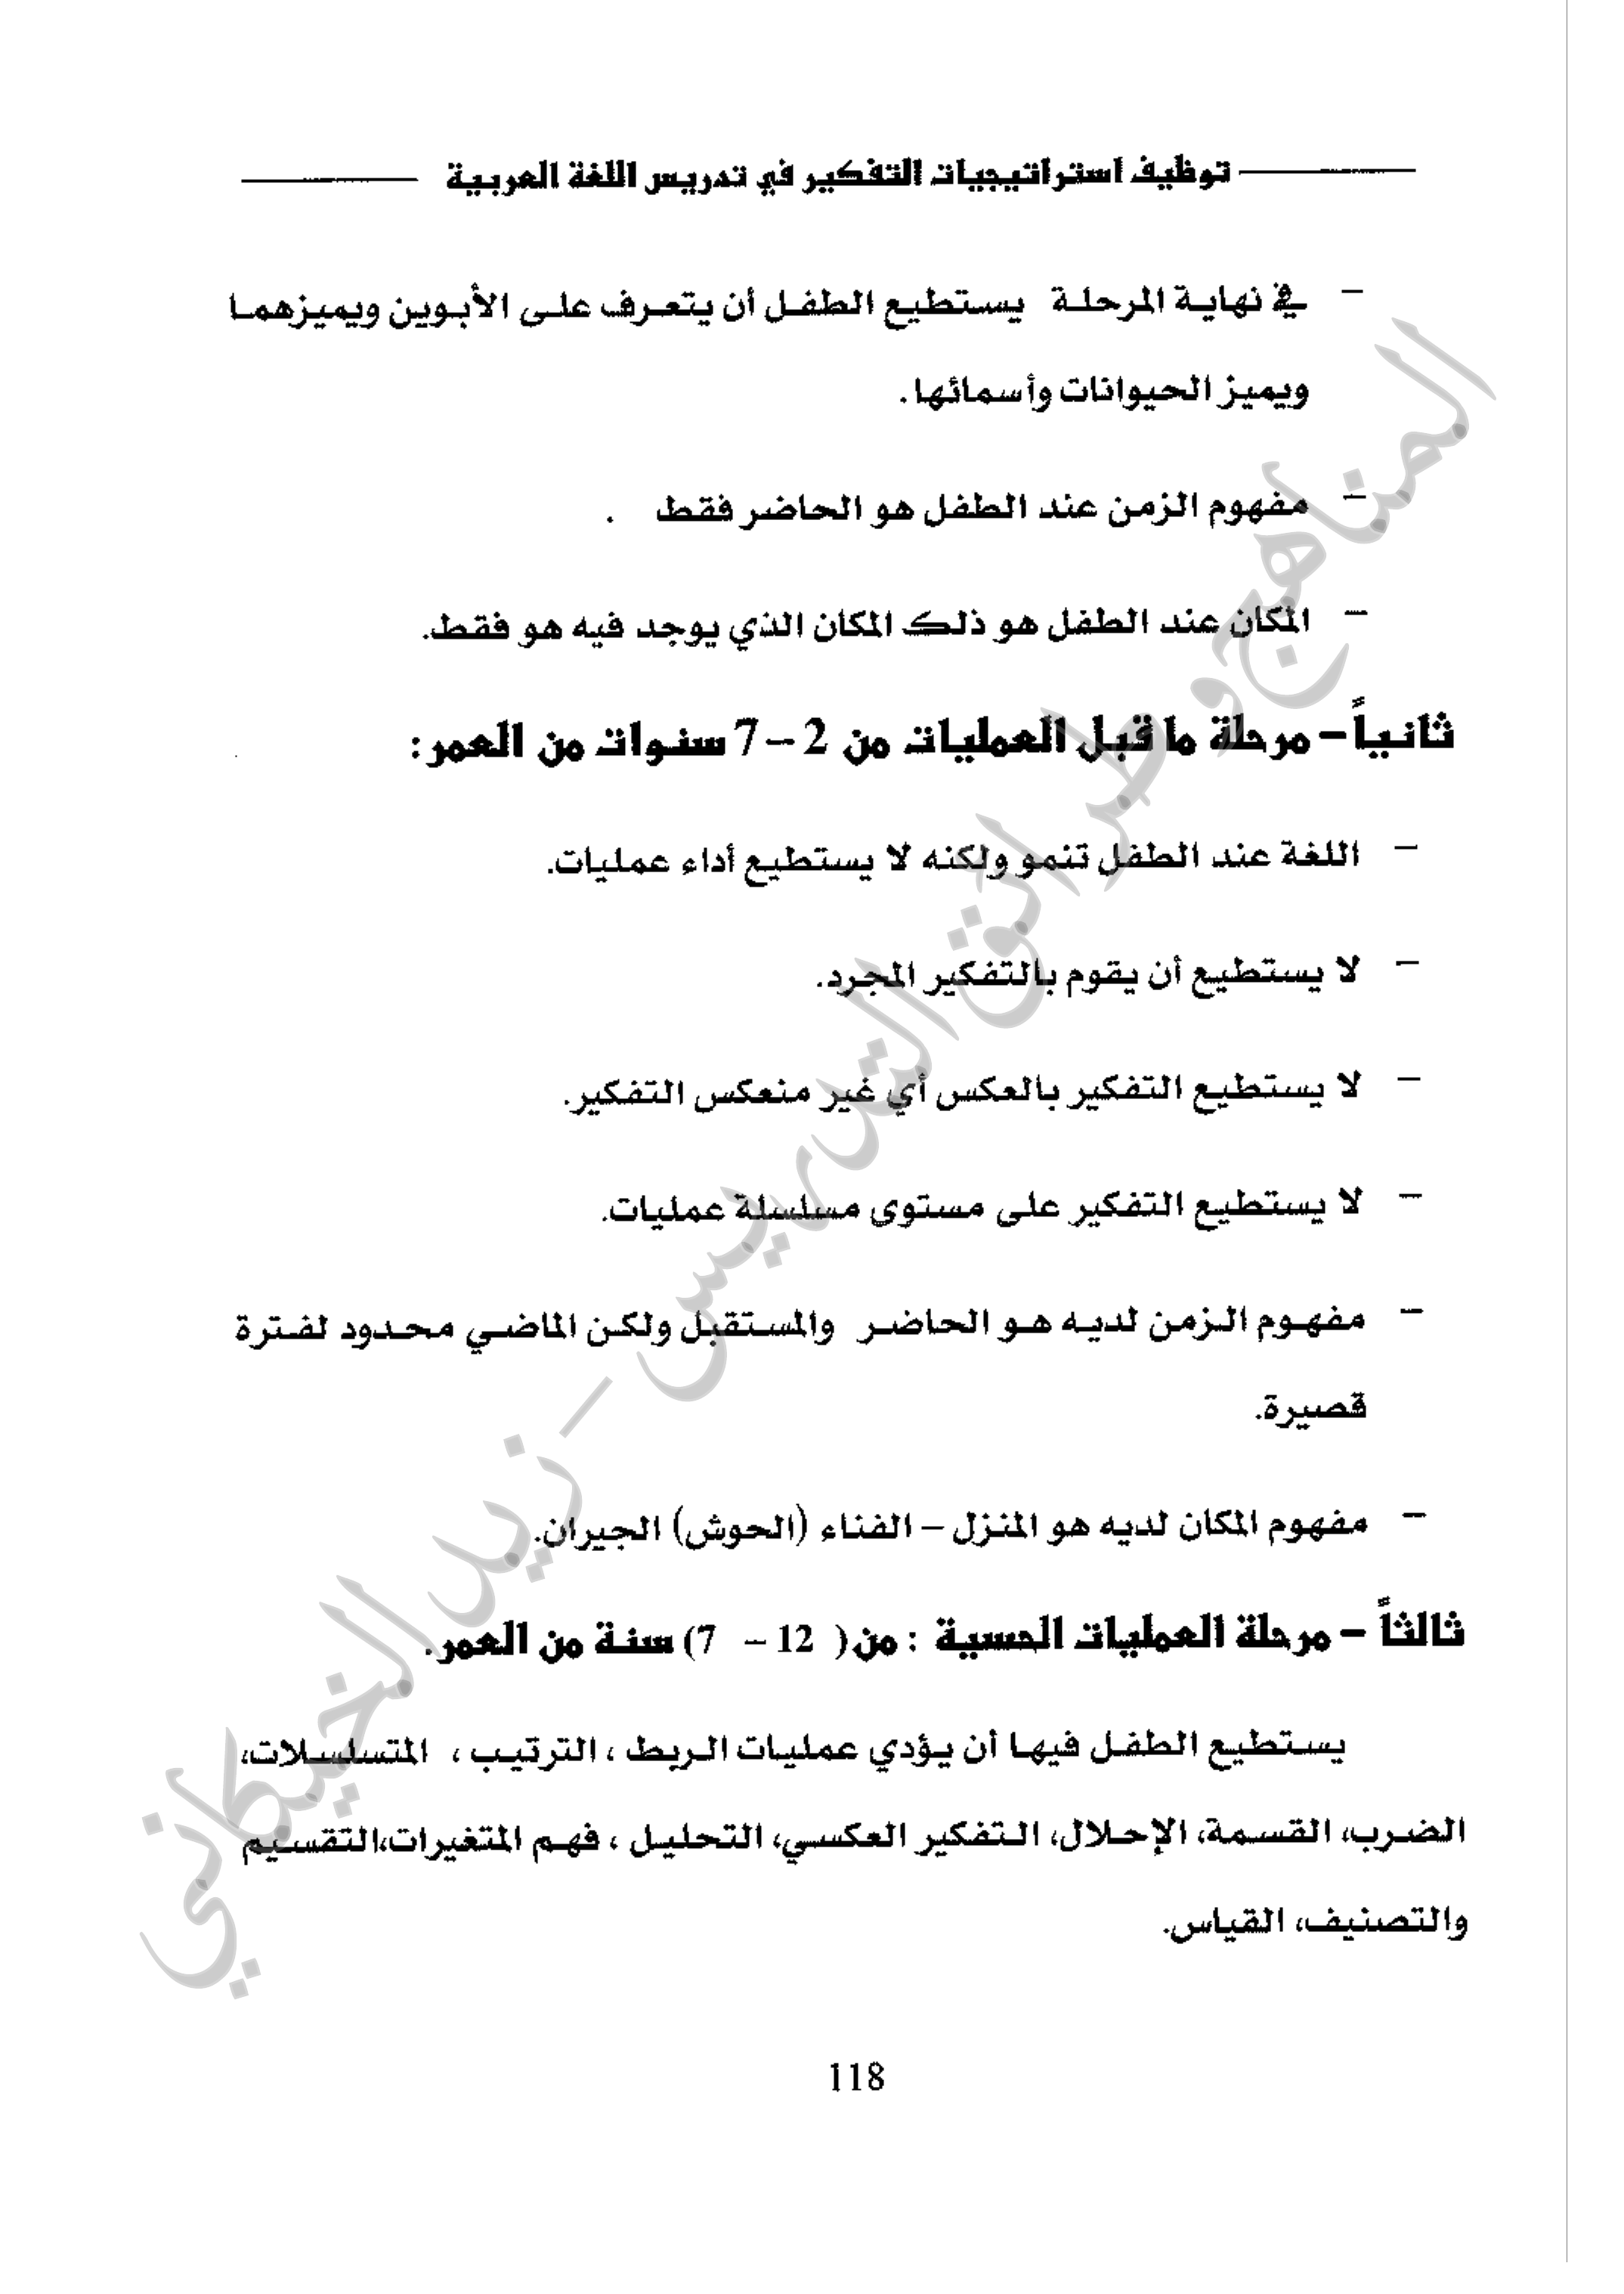 توظيف استراتيجيات التفكير في تدريس اللغة العربية
– في نهاية المرحلة يستطيع الطفل أن يتعرف على الأبوين ويميزهما
ويميز الحيوانات وأسمائها.
– مفهوم الزمن عند الطفل هو الحاضر فقط .
– المكان عند الطفل هو ذلك المكان الذي يوجد فيه هو فقط.
ثانياً – مرحلة ما قبل العمليات من 2 – 7 سنوات من العمر:
– اللغة عند الطفل تنمو ولكنه لا يستطيع أداء عمليات.
– لا يستطيع أن يقوم بالتفكير المجرد.
– لا يستطيع التفكير بالعكس أي غير منعكس التفكير.
– لا يستطيع التفكير على مستوى مسلسلة عمليات.
– مفهوم الزمن لديه هو الحاضر والمستقبل ولكن الماضي محدود لفترة
قصيرة.
– مفهوم المكان لديه هو المنزل – الفناء (الحوش) الجيران.
ثالثاً – مرحلة العمليات الحسية : من ( 12 – 7) سنة من العمر.
يستطيع الطفل فيها أن يؤدي عمليات الربط ، الترتيب ، المتسلسلات،
الضرب، القسمة، الإحلال، التفكير العكسي، التحليل ، فهم المتغيرات،التقسيم
والتصنيف، القياس.
118
المناهج وطرائق التدريس – زيد الخيكاني